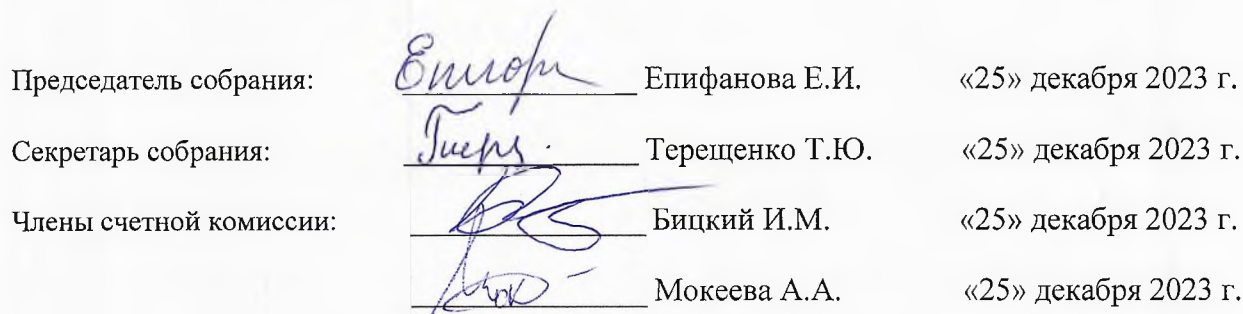 Председатель собрания: Епифанова Е.И. «25» декабря 2023 г.
Секретарь собрания: Терещенко Т.Ю. «25» декабря 2023 г.
Члены счетной комиссии: Бицкий И.М. «25» декабря 2023 г.
Мокеева А.А. «25» декабря 2023 г.